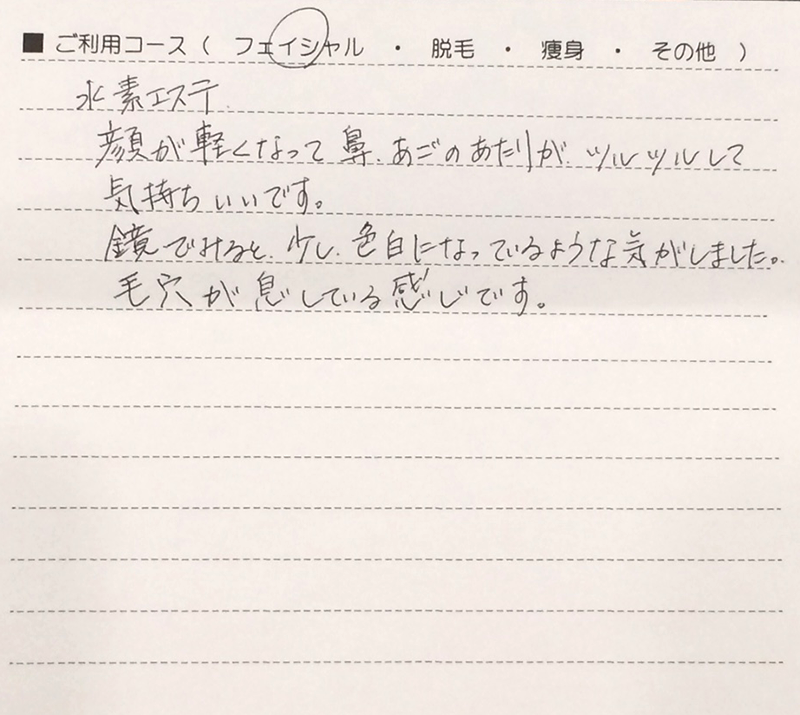 ■ ご利用コース（ フェイシャル ・ 脱毛 ・ 痩身 ・ その他 ）
水素エステ
顔が軽くなって鼻、あごのあたりが、ツルツルして
気持ちいいです。
鏡でみると、少し、色白になっているような気がしました。
毛穴が息している感じです。